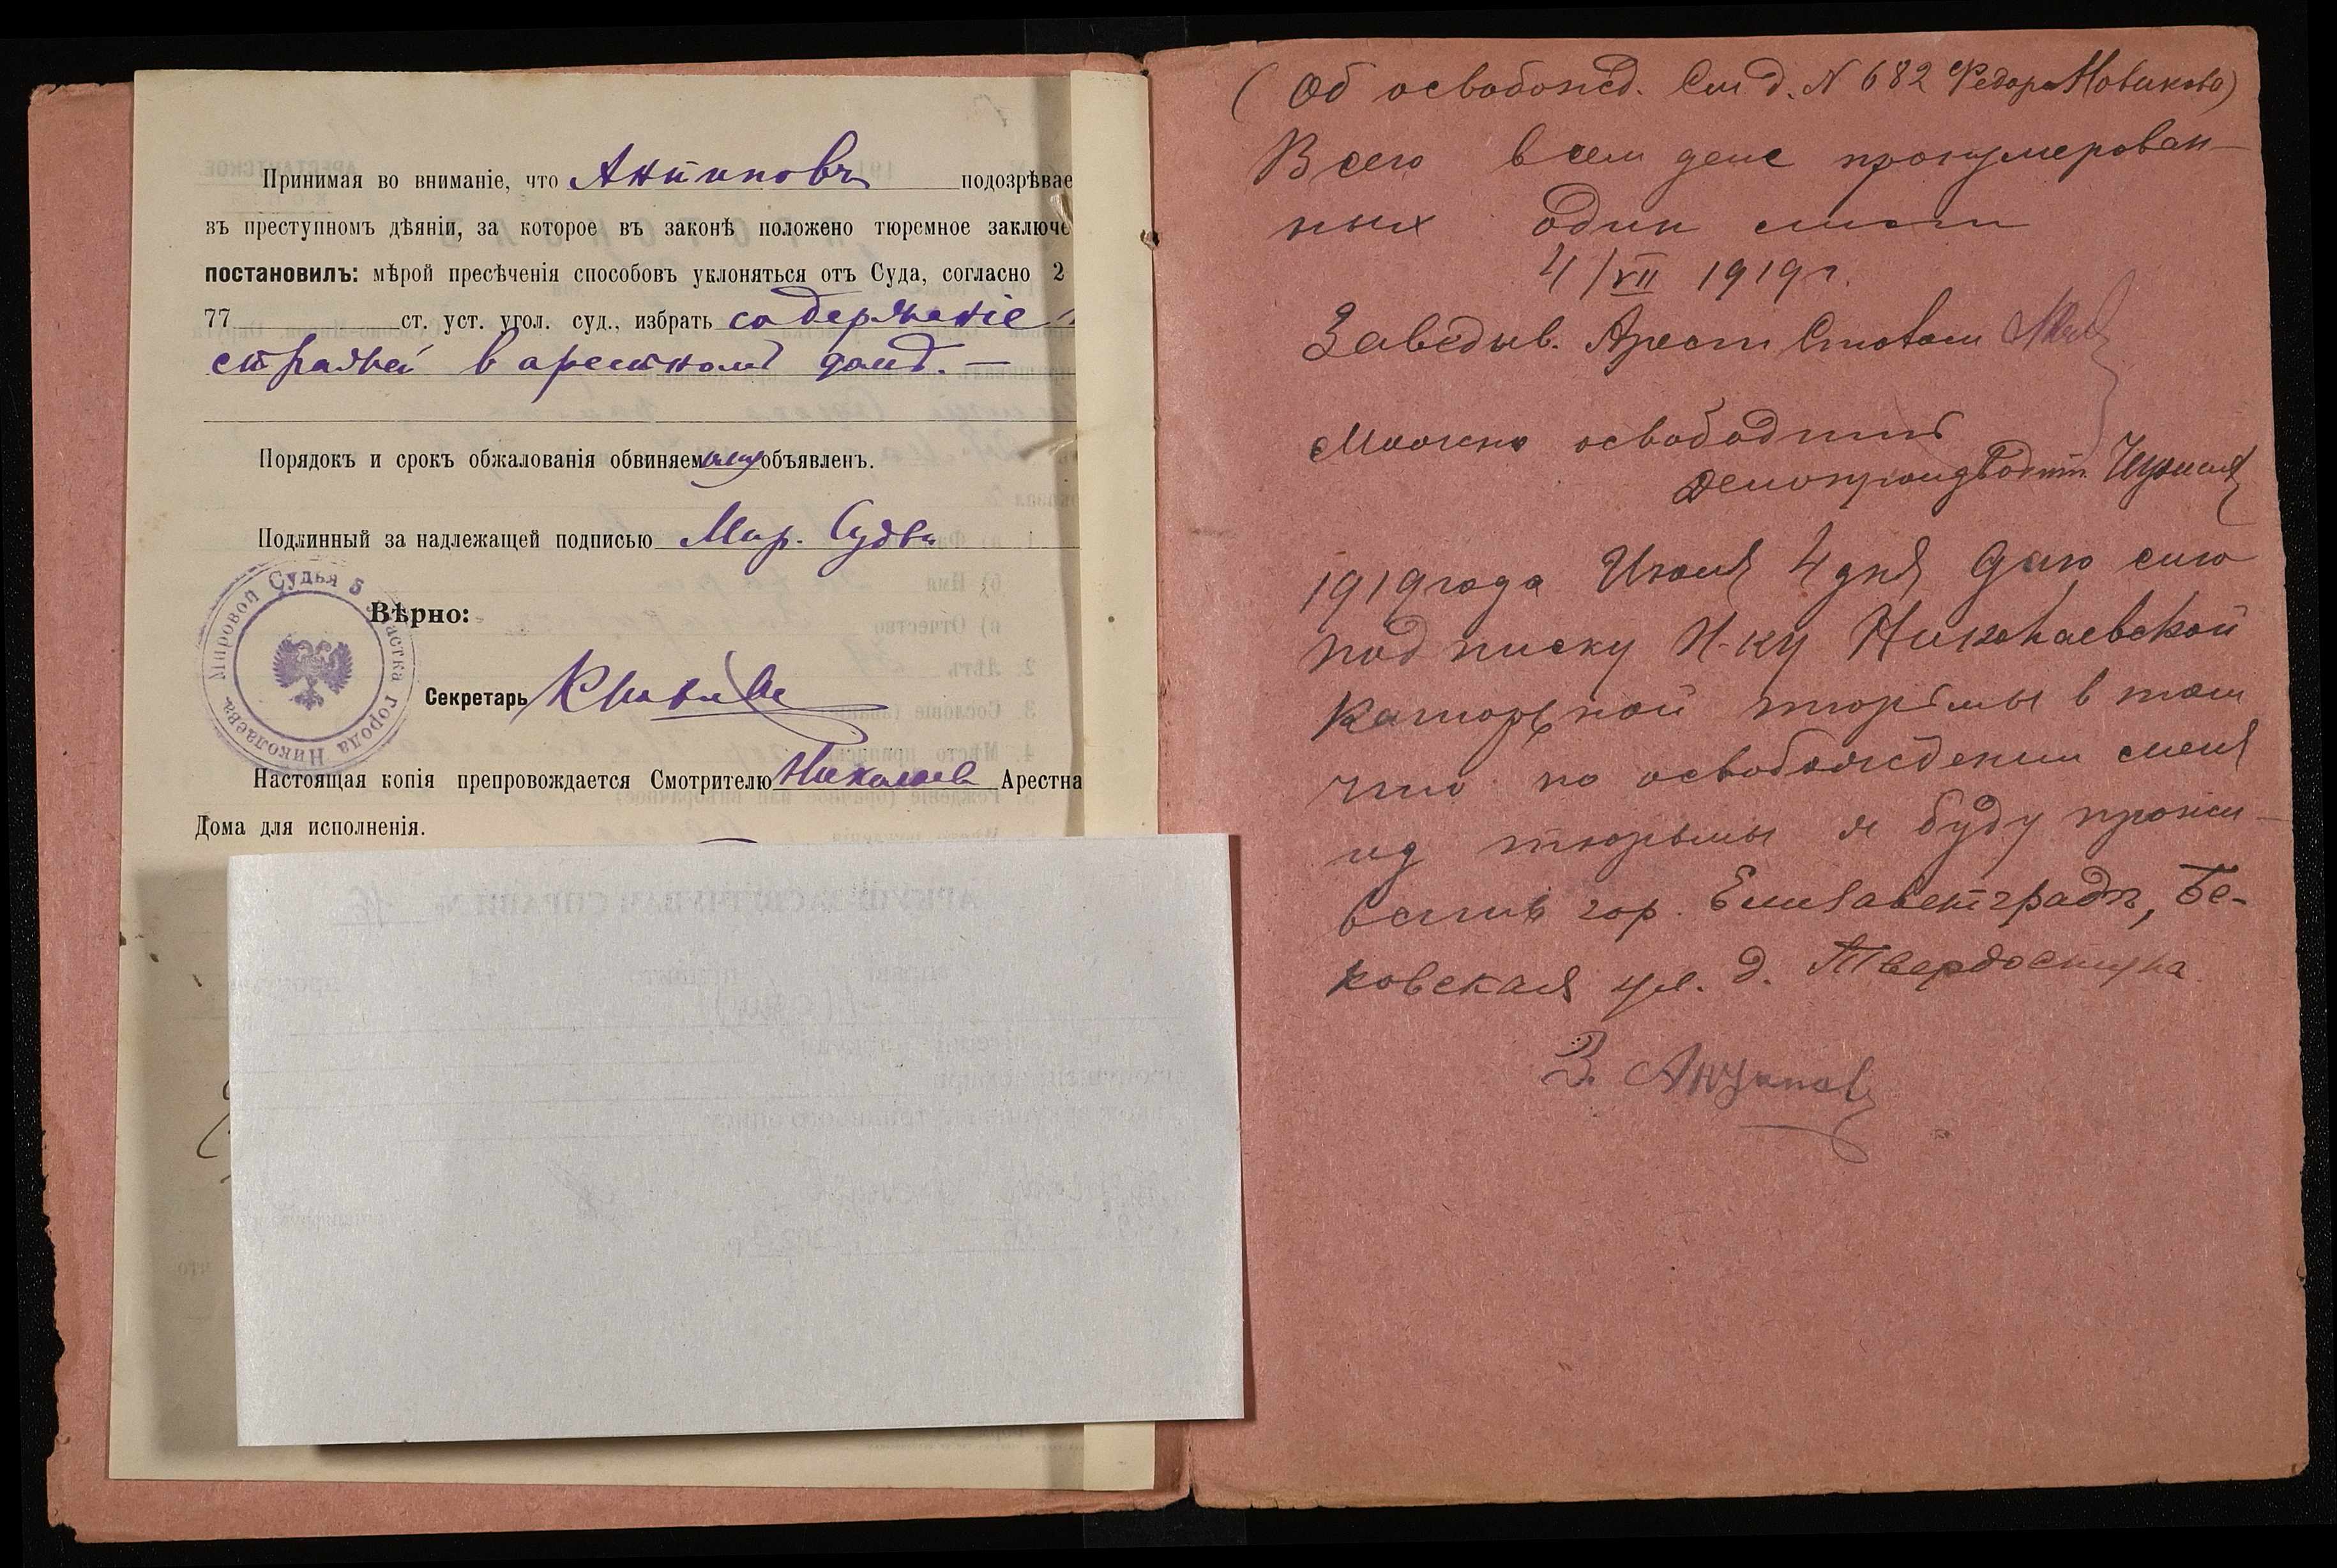 Принимая во вниманіе, что Антиповъ подозрѣвае
въ преступномъ дѣяніи, за которое въ законѣ положено тюремное заключе
постановилъ: мѣрой пресѣченія способовъ уклоняться отъ Суда, согласно 2
77 ст. уст. угол. суд., избрать содержаніе
стражей в арестном домѣ. —
Порядокъ и срокъ обжалованія обвиняемому объявленъ.
Подлинный за надлежащей подписью Мир. Судьи
Мировой Судья 5 участка города Николаева
Вѣрно:
Секретарь
Настоящая копія препровождается Смотрителю Николаев Арестна
Дома для исполненія.
(Об освобожд. См д. N 682 Федора Новикова)
Всего в сем деле пронумерован-
ных один лист
4/VII 1919 г.
Заведыв. Арест Столом
Можно освободить
1919 года Июля 4 дня даю сию
подписку Н-ку Николаевской
каторжной тюрьмы в том
что по освобождении меня
из тюрьмы я буду прожи-
вать в гор. Елисаветградѣ, Бе-
ковская ул. д. Твердоступа
З. Антипов